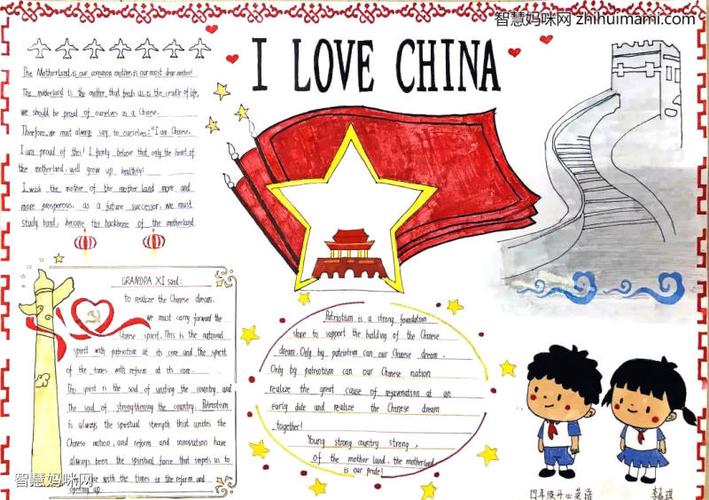 智慧妈咪网 zhihuimami.com
I LOVE CHINA
The Motherland is our common mother, is our most dear mother!
The motherland is the mother that fresh us is the cradle of life,
we should be proud of ourselves as a Chinese.
Therefore, we must always say to ourselves: "I am Chinese.
I am proud of this! I firmly believe that only the heart of
the motherland, will grow up healthily!
I wish the mother of the mother land more and
more prosperous, as a future successor, we must
study hard, become the backbone of the motherland.
GRANDPA XI said:
to realize the Chinese dream.
we must carry forward the
Chinese spirit. This is the national
spirit with patriotism at its core and the spirit
of the times with reform at its core.
This spirit is the soul of uniting the country, and
the soul of strengthening the country. Patriotism
is always the spiritual strength that unites the
Chinese nation, and reform and innovation have
always been the spiritual force that impels us to
keep with the times in the reform and
opening up.
Patriotism is a strong foundation
stone to support the building of the Chinese
dream. Only by patriotism can our Chinese dream.
Only by patriotism can our Chinese nation
realize the great cause of rejuvenation at an
early date and realize the Chinese dream
together!
Young strong country strong,
of the mother land, the motherland
is our pride!
智慧妈咪网
四年级 英语